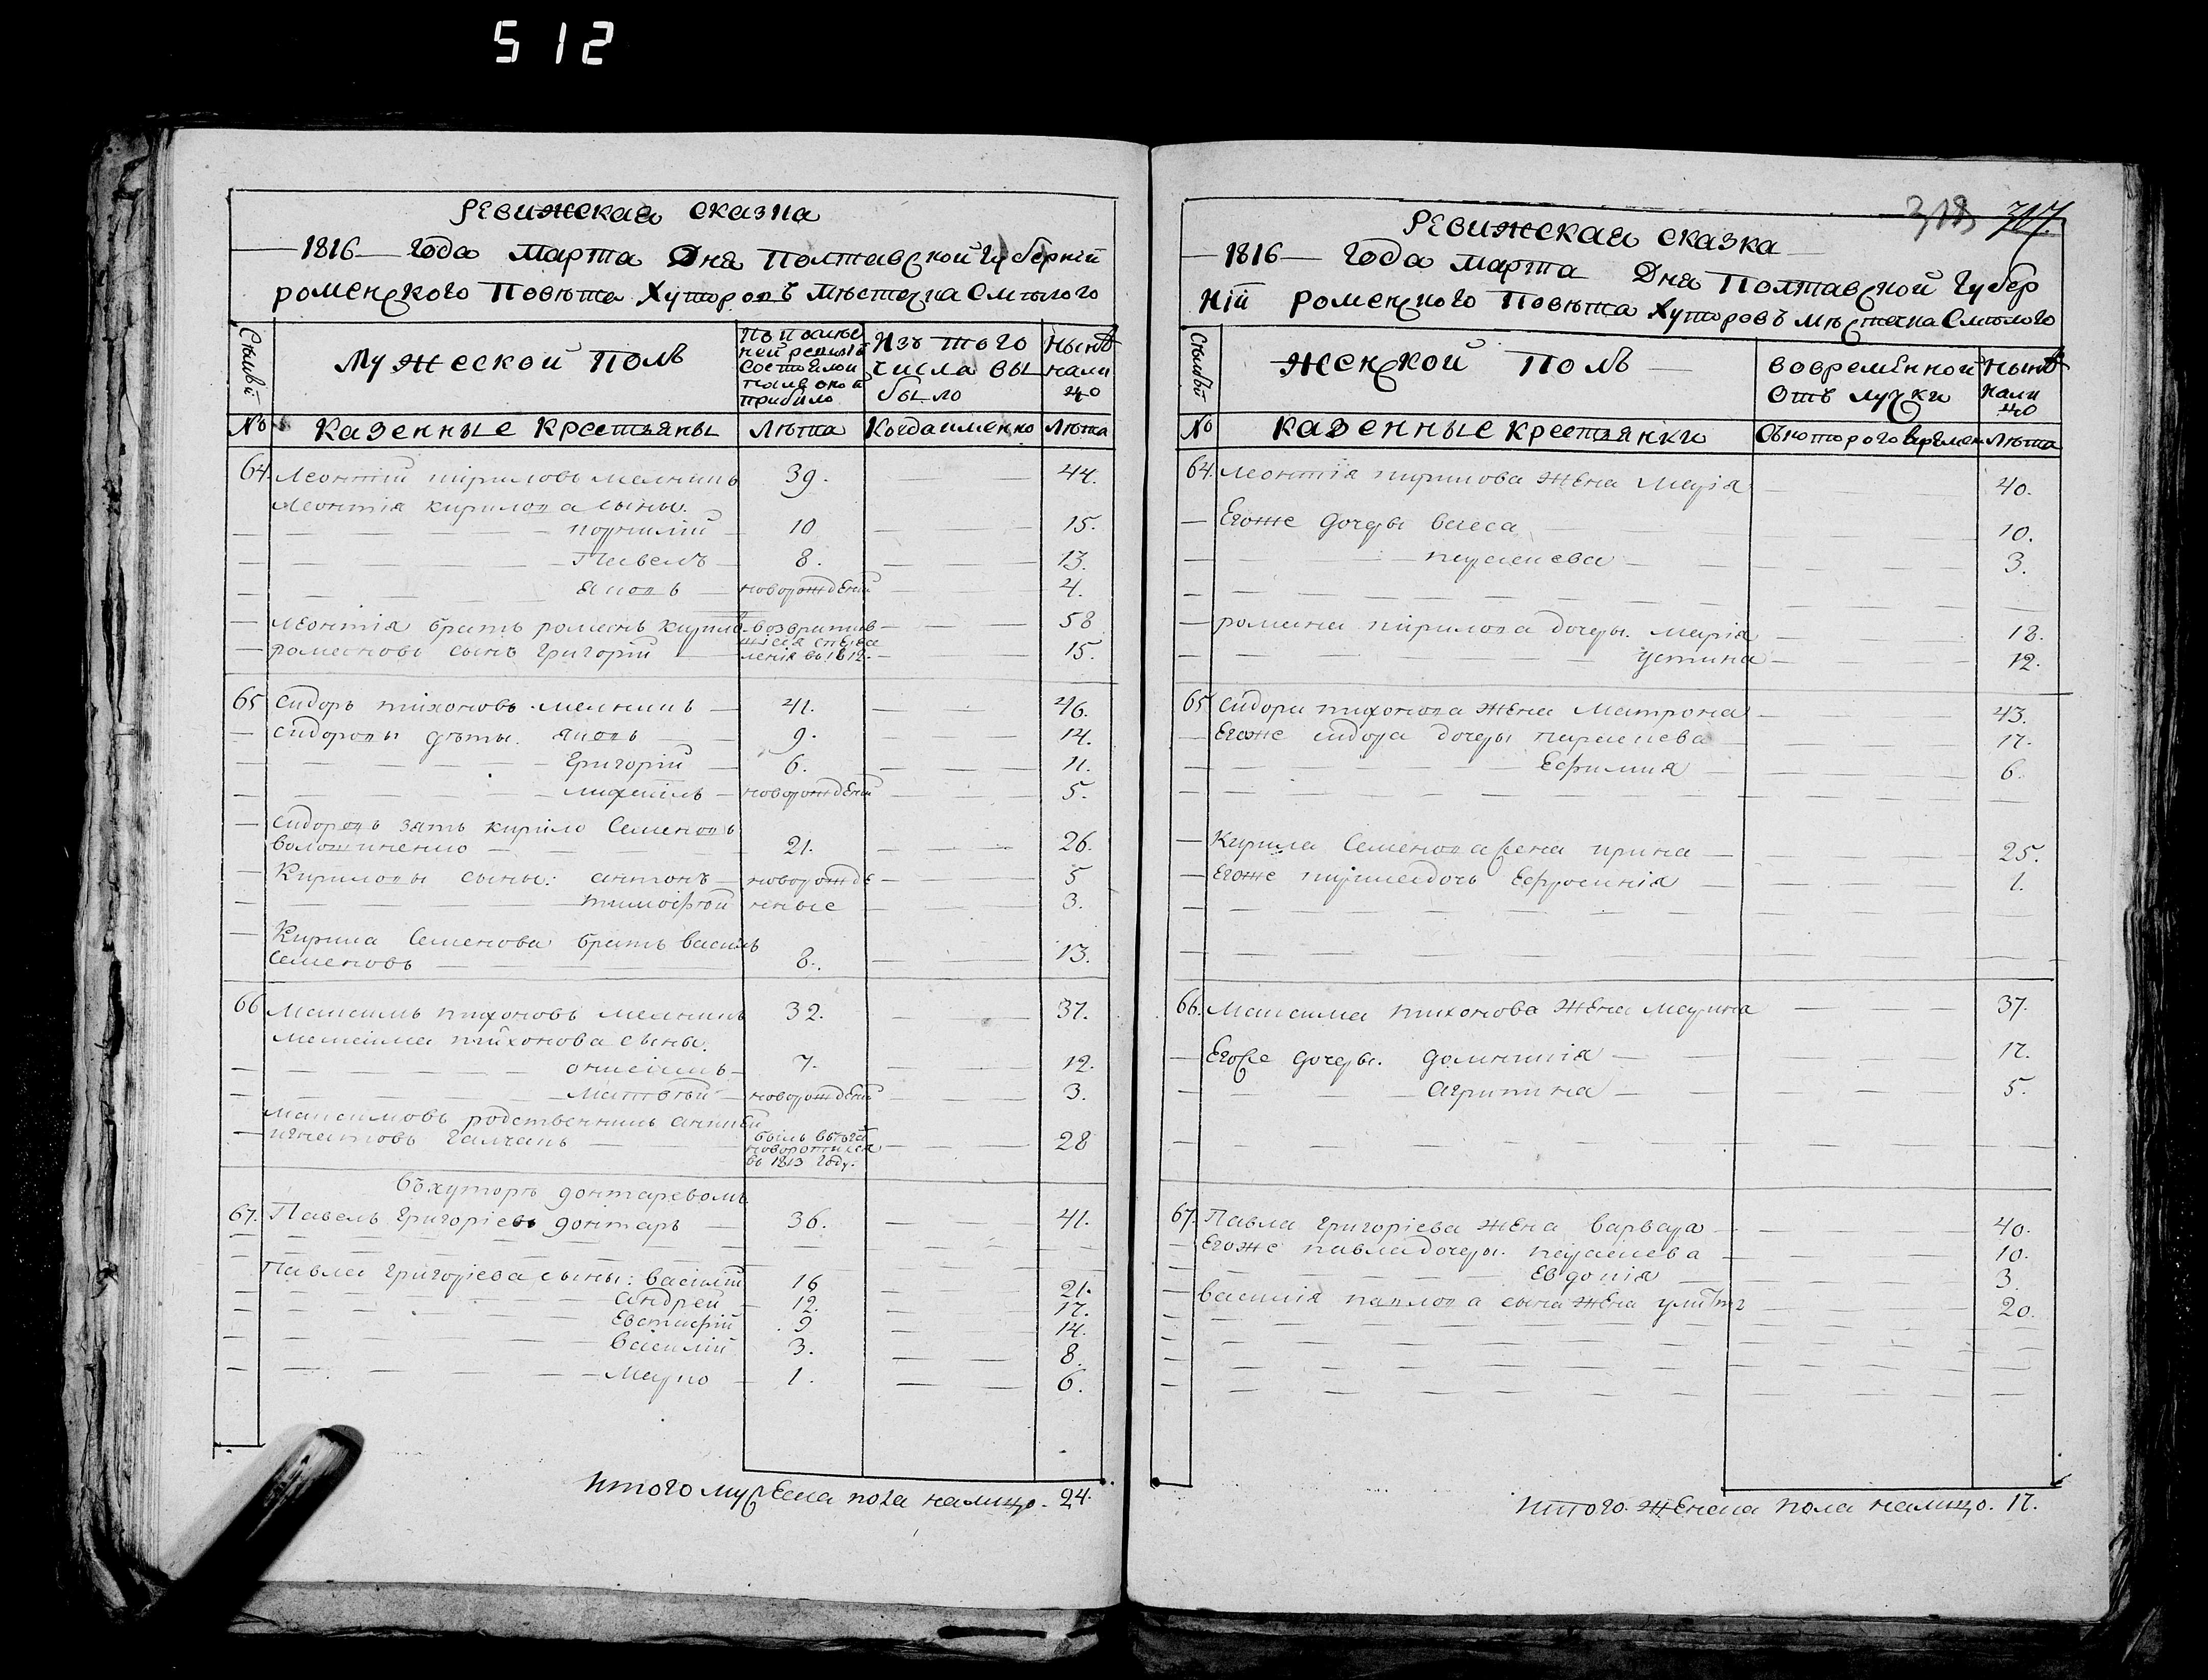 512
Ревижская сказка
1816 года Марта Дня Полтавской Губерній
роменского Повѣта Хуторовъ Мѣстечка Смѣлого
Мужеской Полъ
По послѣд
ней ревизіи
состояло и
послѣ оной
прибило
Изъ того
числа вы
было
Нынѣ
нали
цо
№ Казенные Крестьяны Лѣта Когда именно Лѣта
64. Леонтій кириловъ мелникъ 39. 44.
Леонтія кирилова сыны.
корнилій 10 15.
Павелъ 8. 13.
Яковъ новорожденій 4.
Леонтія братъ романъ кирило возвратив 58
шійся
романовъ сынъ Григорій въ 1812. 15.
65 Сидоръ тихоновъ мелникъ 41. 46.
сидоровы дѣты. Яковъ 9. 14.
Григорій 6. 11.
михаилъ новорожденій 5.
Сидоровъ зять кирило Семеновъ
волошиненко 21. 26.
Кириловы сыны: антонъ новорожде 5
тимофѣй нные 3.
Кирила Семенова братъ василь
Семеновъ 8. 13.
66 Максимъ тихоновъ мелникъ 32. 37.
максима тихонова сыны.
7. 12.
матвѣй новорожденій 3.
максимовъ родственникъ
игнатовъ галчанъ былъ 28
въ 1813 году.
Въ хуторѣ донтаревомъ
67. Павелъ Григоріевъ донтаръ 36. 41.
Павла Григоріева сыны: василій 16 21.
андрей 12. 17.
Евстафій 9 14.
василій 3. 8.
Марко 1. 6.
Итого мужеска пола налицо. 24.
318 317.
Ревижская сказка
1816 года Марта Дня Полтавской Губер
ній роменского Повѣта Хуторовъ Мѣстечка Смѣлого
женской полъ
вовремѣнной
отълучки
Нынѣ
нали
цо
№ казенные крестьянки Сѣкоторого времен Лѣта
64. Леонтія кирилова жена Марія 40.
Егоже дочеры васса 10.
параскева 3.
романа кирилова дочеры. марія 18.
устина 12.
65 Сидора тихонова жена Матрона 43.
Егоже сидора дочеры параскева 17.
Ефимия 6.
Кирила Семенова жена ирина 25.
Егоже кирила дочь Ефросинія 1.
66. Максима тихонова жена марина 37.
Егоже дочеры. домникія 17.
агрипина 5.
67. Павла григоріева жена варвара 40.
Егоже павла дочеры. параскева 10.
Евдокія 3.
василія павлова сына жена 20.
Итого. женска пола налицо. 17.